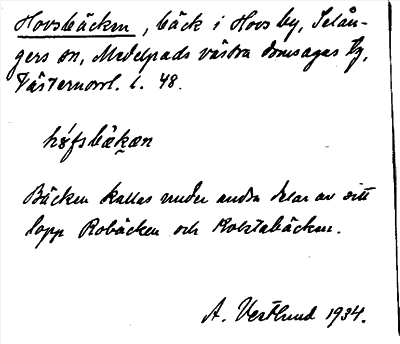 Hovsbäcken, bäck i Hovs by, Selån-
gers sn, Medelpads västra domsagas tg,
Västernorrl. l. 48.
høfsbäkæn
Bäcken kallas under andra delar av sitt
lopp Robäcken och Kolstabäcken.
A. Vestlund 1934.